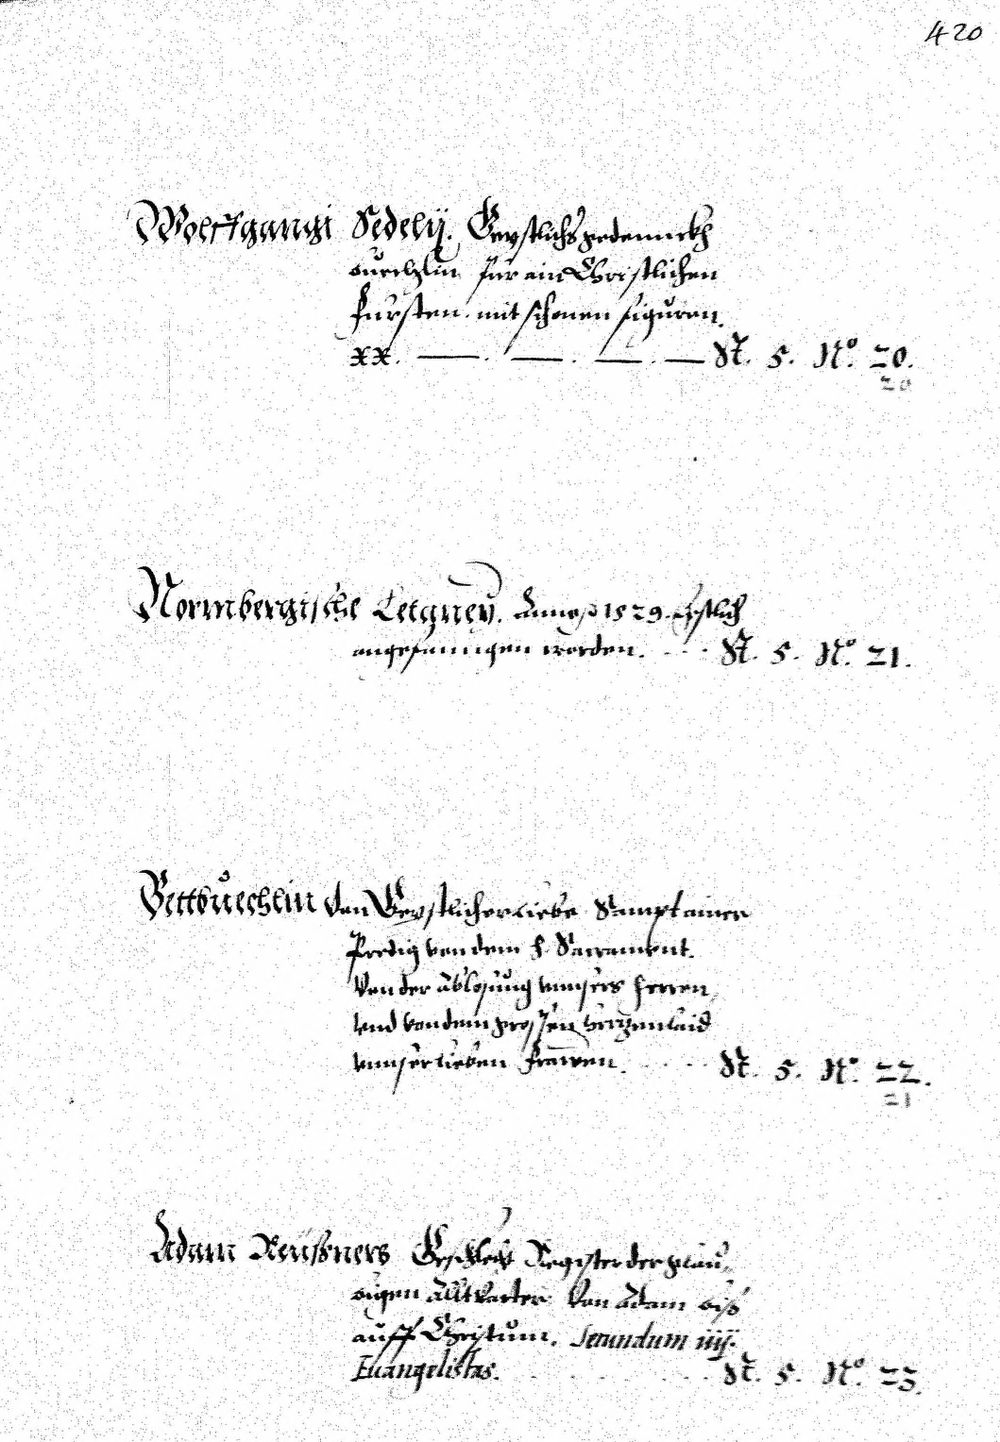 420
Wolffgangi Sedelij. Geystlichs gedennckh
buechlin für ain Christlichen
fürsten. mit schonen figuren.
XX. St. 5. N°. 20.
20
Normbergische Letgney. Anno 1529. Erstlich
angefanngen worden. St. 5. N°. 21.
Bettbuechlin von Geystlicher liebe Sampt ainer
Predig von dem h. Sacrament.
Von der ablosung unnsers herren,
und von dem grossen hertzenlaid
unnser lieben frawen. St. 5. N°. 22.
21
Adam Reüssners Geschlecht Register der glau,
bigen alltvatter von Adam biß
auff Christum. Secundum iiij.
Euangelistas. St. 5. N°. 23.